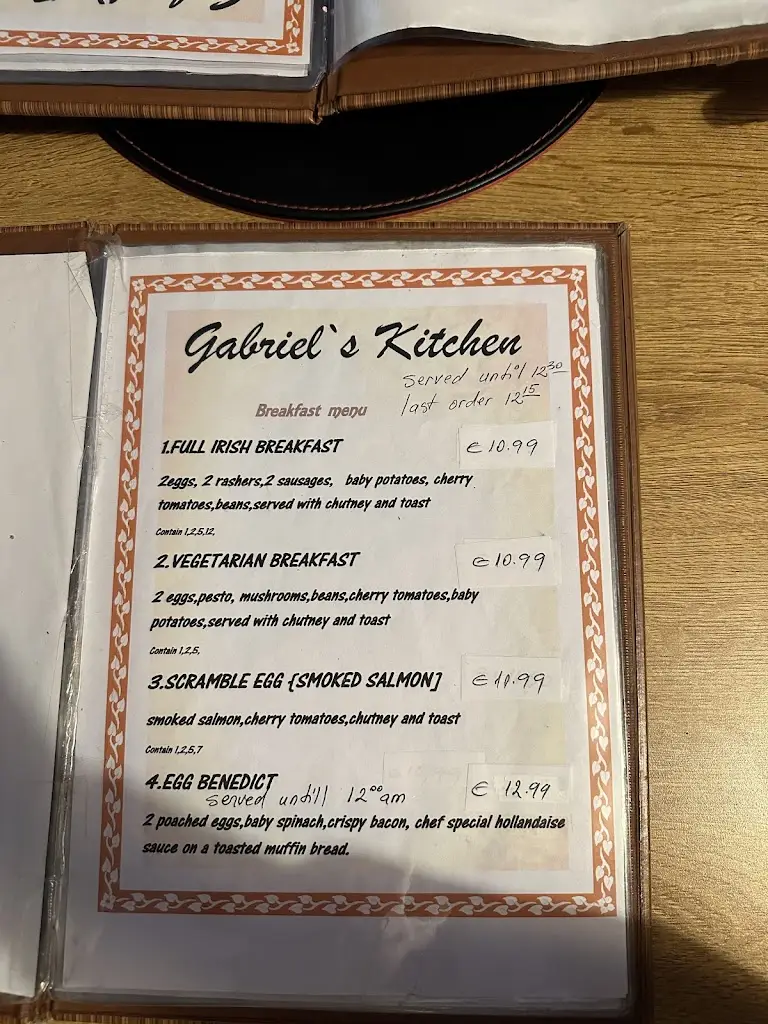 Gabriel`s Kitchen
served until 12³⁰
last order 12¹⁵
Breakfast menu
1.FULL IRISH BREAKFAST € 10.99
2eggs, 2 rashers,2 sausages, baby potatoes, cherry
tomatoes,beans,served with chutney and toast
Contain 1,2,5,12,
2.VEGETARIAN BREAKFAST € 10.99
2 eggs,pesto, mushrooms,beans,cherry tomatoes,baby
potatoes,served with chutney and toast
Contain 1,2,5,
3.SCRAMBLE EGG {SMOKED SALMON] € 11.99
smoked salmon,cherry tomatoes,chutney and toast
Contain 1,2,5,7
4.EGG BENEDICT € 12.99
served untill 12⁰⁰am
2 poached eggs,baby spinach,crispy bacon, chef special hollandaise
sauce on a toasted muffin bread.